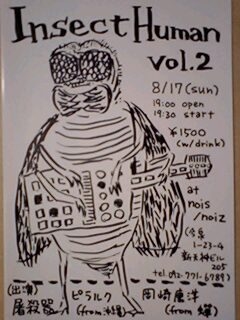 Insect Human
vol.2
8/17(sun)
19:00 open
19:30 start
¥1500
(w/drink)
at
nois
/noiz
(今泉
1-23-4
新天神ビル
205
tel.092-771-6789)
(出演)
屠殺器
ピラルク
(from 沖縄)
岡崎康洋
(from 大阪)